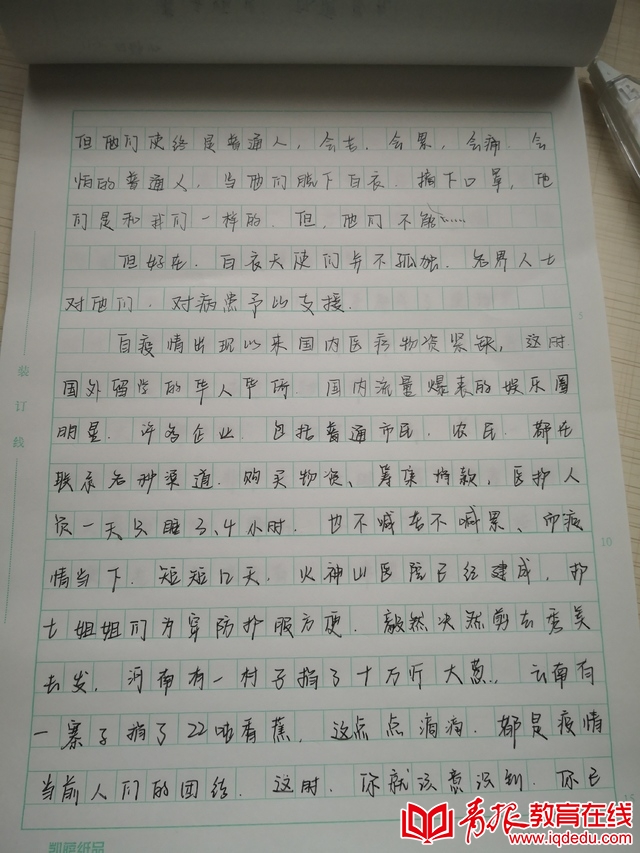 但他们使终是普通人，会老、会累，会痛、会
怕的普通人，当他们脱下白衣、摘下口罩，他
们是和我们一样的、但，他们不能……
但好在、白衣天使们并不孤独、各界人士
对他们、对病患予以支援、
自疫情出现以来国内医疗物资紧缺，这时
国外留学的华人华侨、国内流量爆表的娱乐圈
明星、许多企业、包括普通市民、农民、都在
联系各种渠道、购买物资、筹集捐款，医护人
员一天只睡3、4小时、也不喊苦不喊累、而疫
情当下、短短12天、火神山医院已经建成，护
士姐姐们为穿防护服方便、毅然决然剪去秀美
长发，河南有一村子捐了十万斤大葱、云南有
一寨子捐了22吨香蕉、这点点滴滴、都是疫情
当前人们的团结、这时、你就该意识到、你已
装订线
5
10
15
凯萨纸品
青报教育在线
www.iqdedu.com